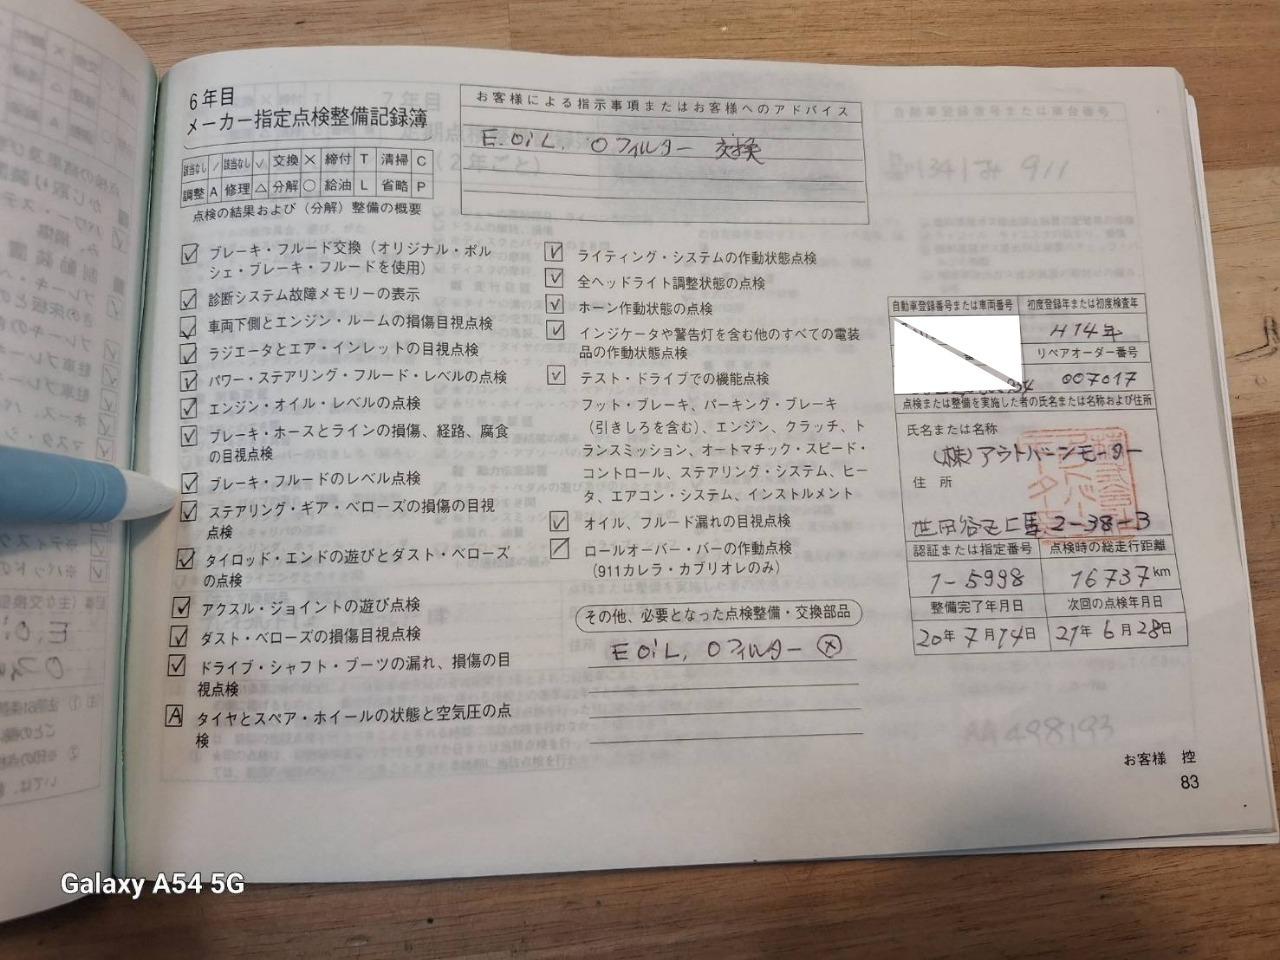 6年目
メーカー指定点検整備記録簿
該当なし / 該当なし ✓ 交換 × 締付 T 清掃 C
調整 A 修理 △ 分解 ○ 給油 L 省略 P
点検の結果および（分解）整備の概要
お客様による指示事項またはお客様へのアドバイス
E.OiL, Oフィルター 交換
✓ ブレーキ・フルード交換（オリジナル・ポル
シェ・ブレーキ・フルードを使用）
✓ 診断システム故障メモリーの表示
✓ 車両下側とエンジン・ルームの損傷目視点検
✓ ラジエータとエア・インレットの目視点検
✓ パワー・ステアリング・フルード・レベルの点検
✓ エンジン・オイル・レベルの点検
✓ ブレーキ・ホースとラインの損傷、経路、腐食
の目視点検
✓ ブレーキ・フルードのレベル点検
✓ ステアリング・ギア・ベローズの損傷の目視
点検
✓ タイロッド・エンドの遊びとダスト・ベローズ
の点検
✓ アクスル・ジョイントの遊び点検
✓ ダスト・ベローズの損傷目視点検
✓ ドライブ・シャフト・ブーツの漏れ、損傷の目
視点検
A タイヤとスペア・ホイールの状態と空気圧の点
検
✓ ライティング・システムの作動状態点検
✓ 全ヘッドライト調整状態の点検
✓ ホーン作動状態の点検
✓ インジケータや警告灯を含む他のすべての電装
品の作動状態点検
✓ テスト・ドライブでの機能点検
フット・ブレーキ、パーキング・ブレーキ
（引きしろを含む）、エンジン、クラッチ、ト
ランスミッション、オートマチック・スピード・
コントロール、ステアリング・システム、ヒー
タ、エアコン・システム、インストルメント
✓ オイル、フルード漏れの目視点検
/ ロールオーバー・バーの作動点検
（911カレラ・カブリオレのみ）
その他、必要となった点検整備・交換部品
E OiL, Oフィルター ⊗
自動車登録番号または車両番号 初度登録年または初度検査年
H14年
リペアオーダー番号
007017
点検または整備を実施した者の氏名または名称および住所
氏名または名称
(株)アウトバーンモーター
住 所
世田谷区上馬 2-38-3
認証または指定番号 点検時の総走行距離
1-5998 16737km
整備完了年月日 次回の点検年月日
20年 7月14日 21年 6月28日
お客様 控
83
Galaxy A54 5G